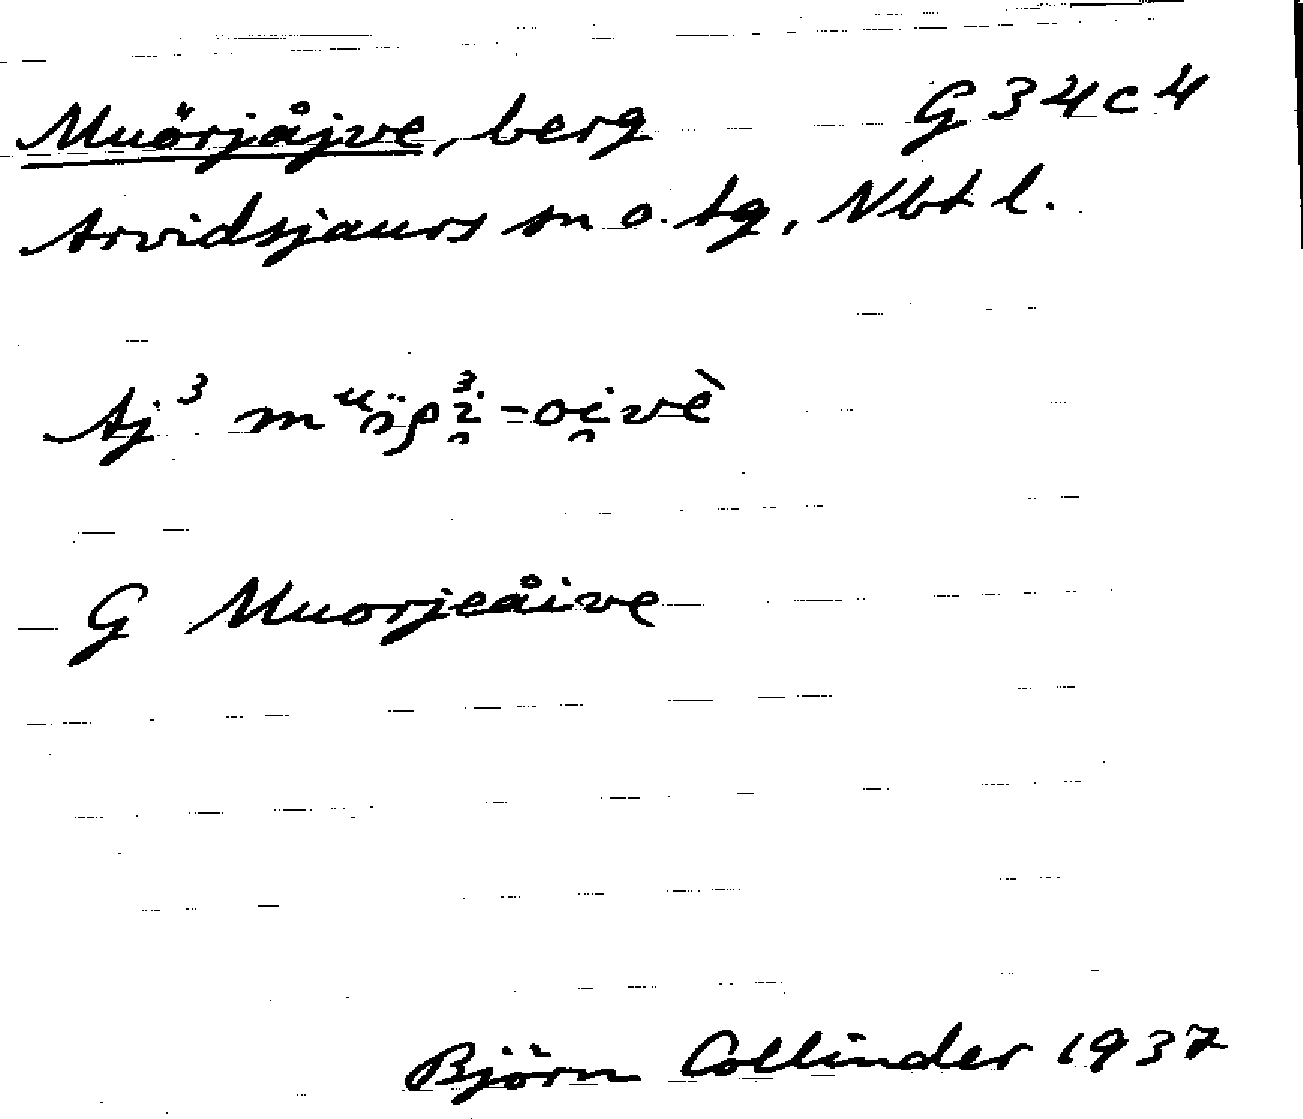 Muörjåjve, berg G 34 c 4
Arvidsjaurs sn o. tg, Nbt l.
Aj³
G Muorjeåive
Björn Collinder 1937